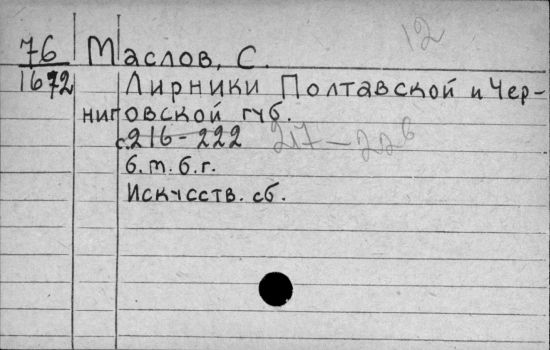 12
76 Маслов, С.
1672 Лирники Полтавской и Чер-
ниговской губ.
с.216-222 217-226
б.т.б.г.
Искусств. сб.